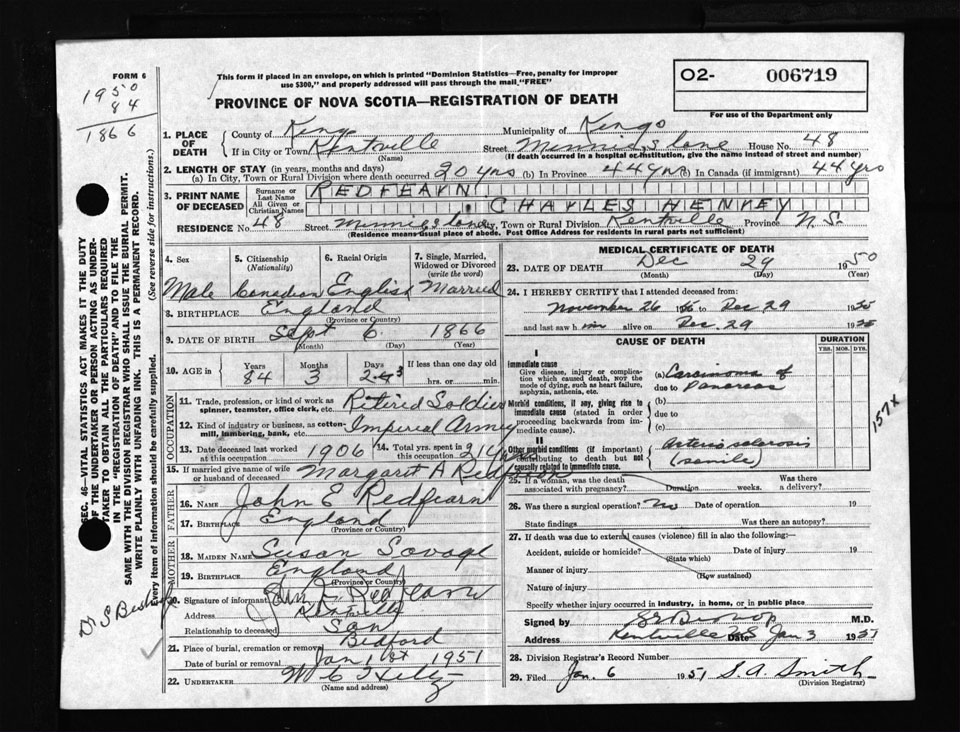 FORM 6
1950
84
1866
This form if placed in an envelope, on which is printed "Dominion Statistics—Free, penalty for improper
use $300," and properly addressed will pass through the mail "FREE"
PROVINCE OF NOVA SCOTIA—REGISTRATION OF DEATH
O2- 006719
For use of the Department only
1. PLACE OF DEATH { County of Kings Municipality of Kings
If in City or Town Kentville Street House No. 48
(Name) (If death occurred in a hospital or institution, give the name instead of street and number)
2. LENGTH OF STAY (in years, months and days)
(a) In City, Town or Rural Division where death occurred 20 yrs (b) In Province 44 yrs (c) In Canada (if immigrant) 44 yrs
3. PRINT NAME OF DECEASED Surname or Last Name REDFEARN
All Given or Christian Names CHARLES HENRY
RESIDENCE No. 48 Street City, Town or Rural Division Kentville Province N.S.
(Residence means usual place of abode. Post Office Address for residents in rural parts not sufficient)
4. Sex 5. Citizenship (Nationality) 6. Racial Origin 7. Single, Married, Widowed or Divorced (write the word)
Male Canadian English Married
8. BIRTHPLACE England
(Province or Country)
9. DATE OF BIRTH Sept 6 1866
(Month) (Day) (Year)
10. AGE in Years Months Days If less than one day old
84 3 hrs. or min.
OCCUPATION
11. Trade, profession, or kind of work as spinner, teamster, office clerk, etc. Retired Soldier
12. Kind of industry or business, as cotton-mill, lumbering, bank, etc. Imperial Army
13. Date deceased last worked at this occupation 1906 14. Total yrs. spent in this occupation 21 yrs
15. If married give name of wife or husband of deceased Margaret A Redfearn
FATHER
16. NAME John E Redfearn
17. BIRTHPLACE England
(Province or Country)
MOTHER
18. MAIDEN NAME Susan Savage
19. BIRTHPLACE England
(Province or Country)
20. Signature of informant Redfearn
Address Kentville
Relationship to deceased Son
21. Place of burial, cremation or removal Bedford
Date of burial or removal Jan 1st 1951
22. UNDERTAKER
(Name and address)
MEDICAL CERTIFICATE OF DEATH
23. DATE OF DEATH Dec 29 1950
(Month) (Day) (Year)
24. I HEREBY CERTIFY that I attended deceased from:
November 26 to Dec 29 1950
and last saw him alive on Dec. 29 1950
CAUSE OF DEATH DURATION
YRS. MOS. DYS.
I
Immediate cause
Give disease, injury or complication which caused death, not the mode of dying, such as heart failure, asphyxia, asthenia, etc.
(a) Carcinoma of
due to Pancreas
Morbid conditions, if any, giving rise to immediate cause (stated in order proceeding backwards from immediate cause).
(b)
due to
(c)
157X
II
Other morbid conditions (if important) contributing to death but not causally related to immediate cause.
Arteriosclerosis
(senile)
25. If a woman, was the death associated with pregnancy? Duration weeks. Was there a delivery?
26. Was there a surgical operation? No Date of operation 19
State findings Was there an autopsy?
27. If death was due to external causes (violence) fill in also the following:—
Accident, suicide or homicide? Date of injury 19
(State which)
Manner of injury
(How sustained)
Nature of injury
Specify whether injury occurred in industry, in home, or in public place
Signed by Bishop M.D.
Address Kentville NS Date Jan 3 1951
28. Division Registrar's Record Number
29. Filed Jan. 6 1951 S. A. Smith
(Division Registrar)
SEC. 46—VITAL STATISTICS ACT MAKES IT THE DUTY
OF THE UNDERTAKER OR PERSON ACTING AS UNDER-
TAKER TO OBTAIN ALL THE PARTICULARS REQUIRED
IN THE "REGISTRATION OF DEATH" AND TO FILE THE
SAME WITH THE DIVISION REGISTRAR WHO SHALL ISSUE THE BURIAL PERMIT.
WRITE PLAINLY WITH UNFADING INK. THIS IS A PERMANENT RECORD.
Every item of information should be carefully supplied. (See reverse side for instructions.)
Dr S Bishop